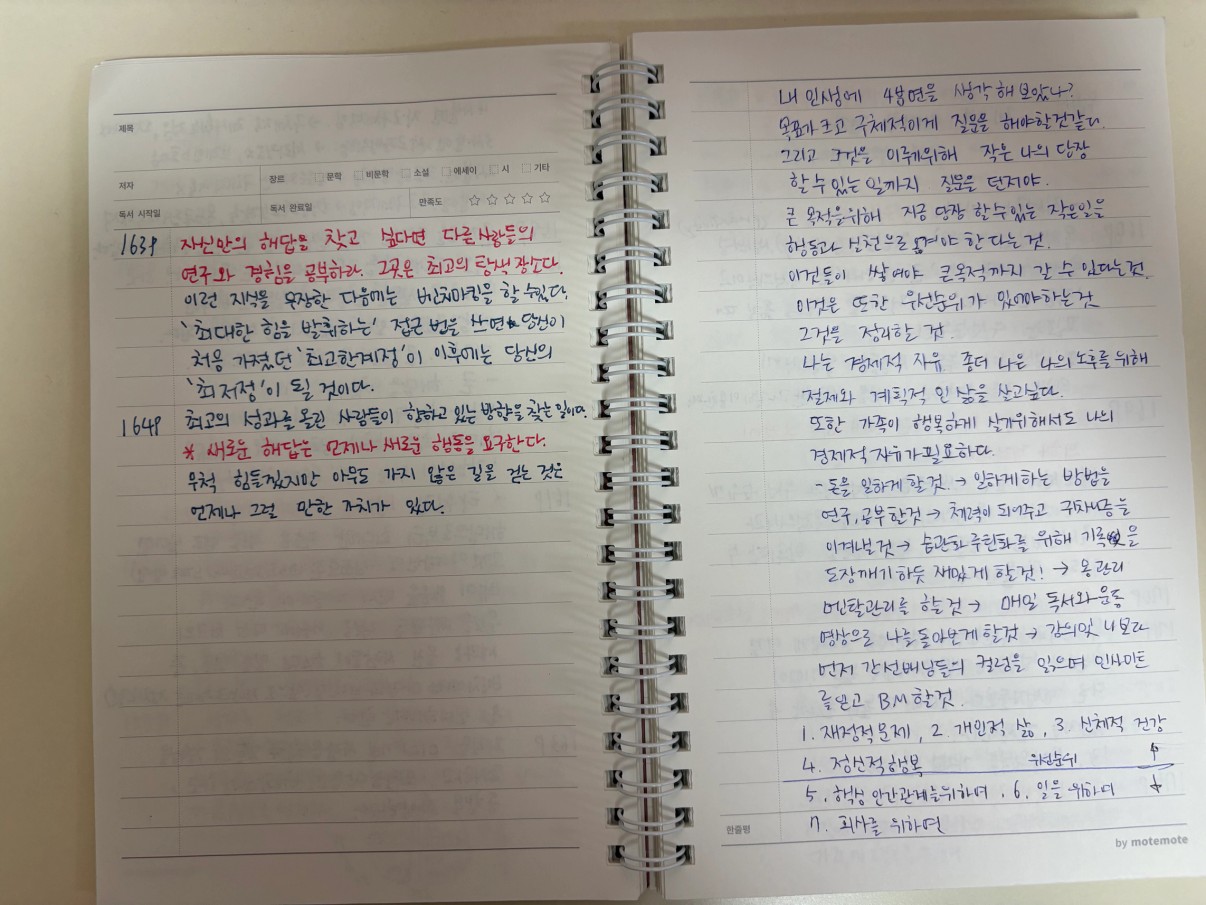 제목
저자
장르 □ 문학 □ 비문학 □ 소설 □ 에세이 □ 시 □ 기타
독서 시작일
독서 완료일
만족도 ☆ ☆ ☆ ☆ ☆
163p 자신만의 해답을 찾고 싶다면 다른사람들의
연구와 경험을 공부하라. 그곳은 최고의 탐색 장소다.
이런 지식을 무장한 다음에는 벤치마킹을 할 수있다.
'최대한 힘을 발휘하는' 접근 법을 쓰면 당신이
처음 가졌던 '최고한계점'이 이후에는 당신의
'최저점'이 될 것이다.
164p 최고의 성과를 올린 사람들이 향하고 있는 방향을 찾는 일이다.
* 새로운 해답는 언제나 새로운 행동을 요구한다.
무척 힘들겠지만 아무도 가지 않은 길을 걷는 것은
언제나 그럴 만한 가치가 있다.
내 인생에 4분면을 생각해 보았나?
목표가 크고 구체적이게 질문을 해야할것같다.
그리고 그것을 이루기위해 작은 나의 당장
할 수 있는 일까지 질문을 던져야.
큰 목적을위해 지금 당장 할수있는 작은일을
행동과 실천으로 옮겨야 한다는 것.
이것들이 쌓여야 큰목적까지 갈 수 있다는것.
이것은 또한 우선순위가 있어야하는것
그것을 정리할 것.
나는 경제적 자유 좀더 나은 나의 노후를 위해
절제와 계획적 인 삶을 살고싶다.
또한 가족이 행복하게 살기위해서도 나의
경제적 자유가 필요하다.
- 돈을 일하게 할것. → 일하게하는 방법을
연구, 공부할것 → 체력이 되어주고 귀차니즘을
이겨낼것 → 습관화 루틴화를 위해 기록을
도장깨기 하듯 재밌게 할것! → 몸관리
멘탈관리를 할 것 → 매일 독서와 운동
영상으로 나를 돌아보게 할것 → 강의및 너보다
먼저 간선배님들의 컬럼을 읽으며 인사이트
를얻고 BM할것.
1. 재정적문제, 2. 개인적 삶, 3. 신체적 건강
4. 정신적행복 우선순위 ↑
5. 핵심 인간관계를위하여. 6. 일을 위하여 ↓
7. 회사를 위하면
한줄평
by motemote